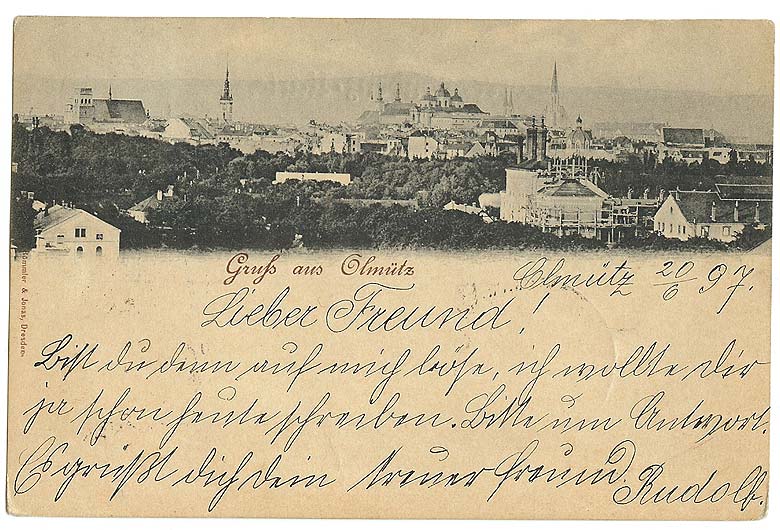 Gruß aus Olmütz
Olmütz 20/6 97.
Lieber Freund!
Bist du denn auf mich böse, ich wollte Dir
ja schon heute schreiben. Bitte um Antwort.
Es grüßt dich dein treuer freund.
Rudolf.
Römmler & Jonas, Dresden.